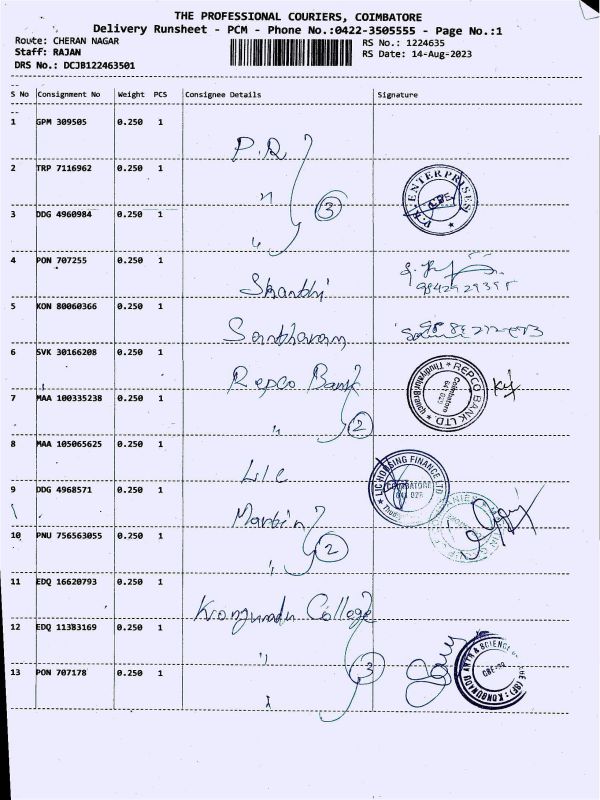 THE PROFESSIONAL COURIERS, COIMBATORE
Delivery Runsheet - PCM - Phone No.:0422-3505555 - Page No.:1
Route: CHERAN NAGAR
RS No.: 1224635
Staff: RAJAN
RS Date: 14-Aug-2023
DRS No.: DCJB122463501
S No Consignment No Weight PCS Consignee Details Signature
1 GPM 309505 0.250 1
P.R.
2 TRP 7116962 0.250 1
"
V.R. ENTERPRISES
CBE
3
3 DDG 4960984 0.250 1
"
4 PON 707255 0.250 1
Shanthi
5 KON 80060366 0.250 1
6 SVK 30166208 0.250 1
Repco Bank
REPCO BANK LTD.
Thudiyalur Branch
Coimbatore
641 029
7 MAA 100335238 0.250 1
"
2
8 MAA 105065625 0.250 1
LIC
LIC HOUSING FINANCE LTD
COIMBATORE
9 DDG 4968571 0.250 1
Martin
10 PNU 756563055 0.250 1
"
2
11 EDQ 16620793 0.250 1
Kongunadu College
12 EDQ 11383169 0.250 1
"
ARTS & SCIENCE
13 PON 707178 0.250 1
3
"